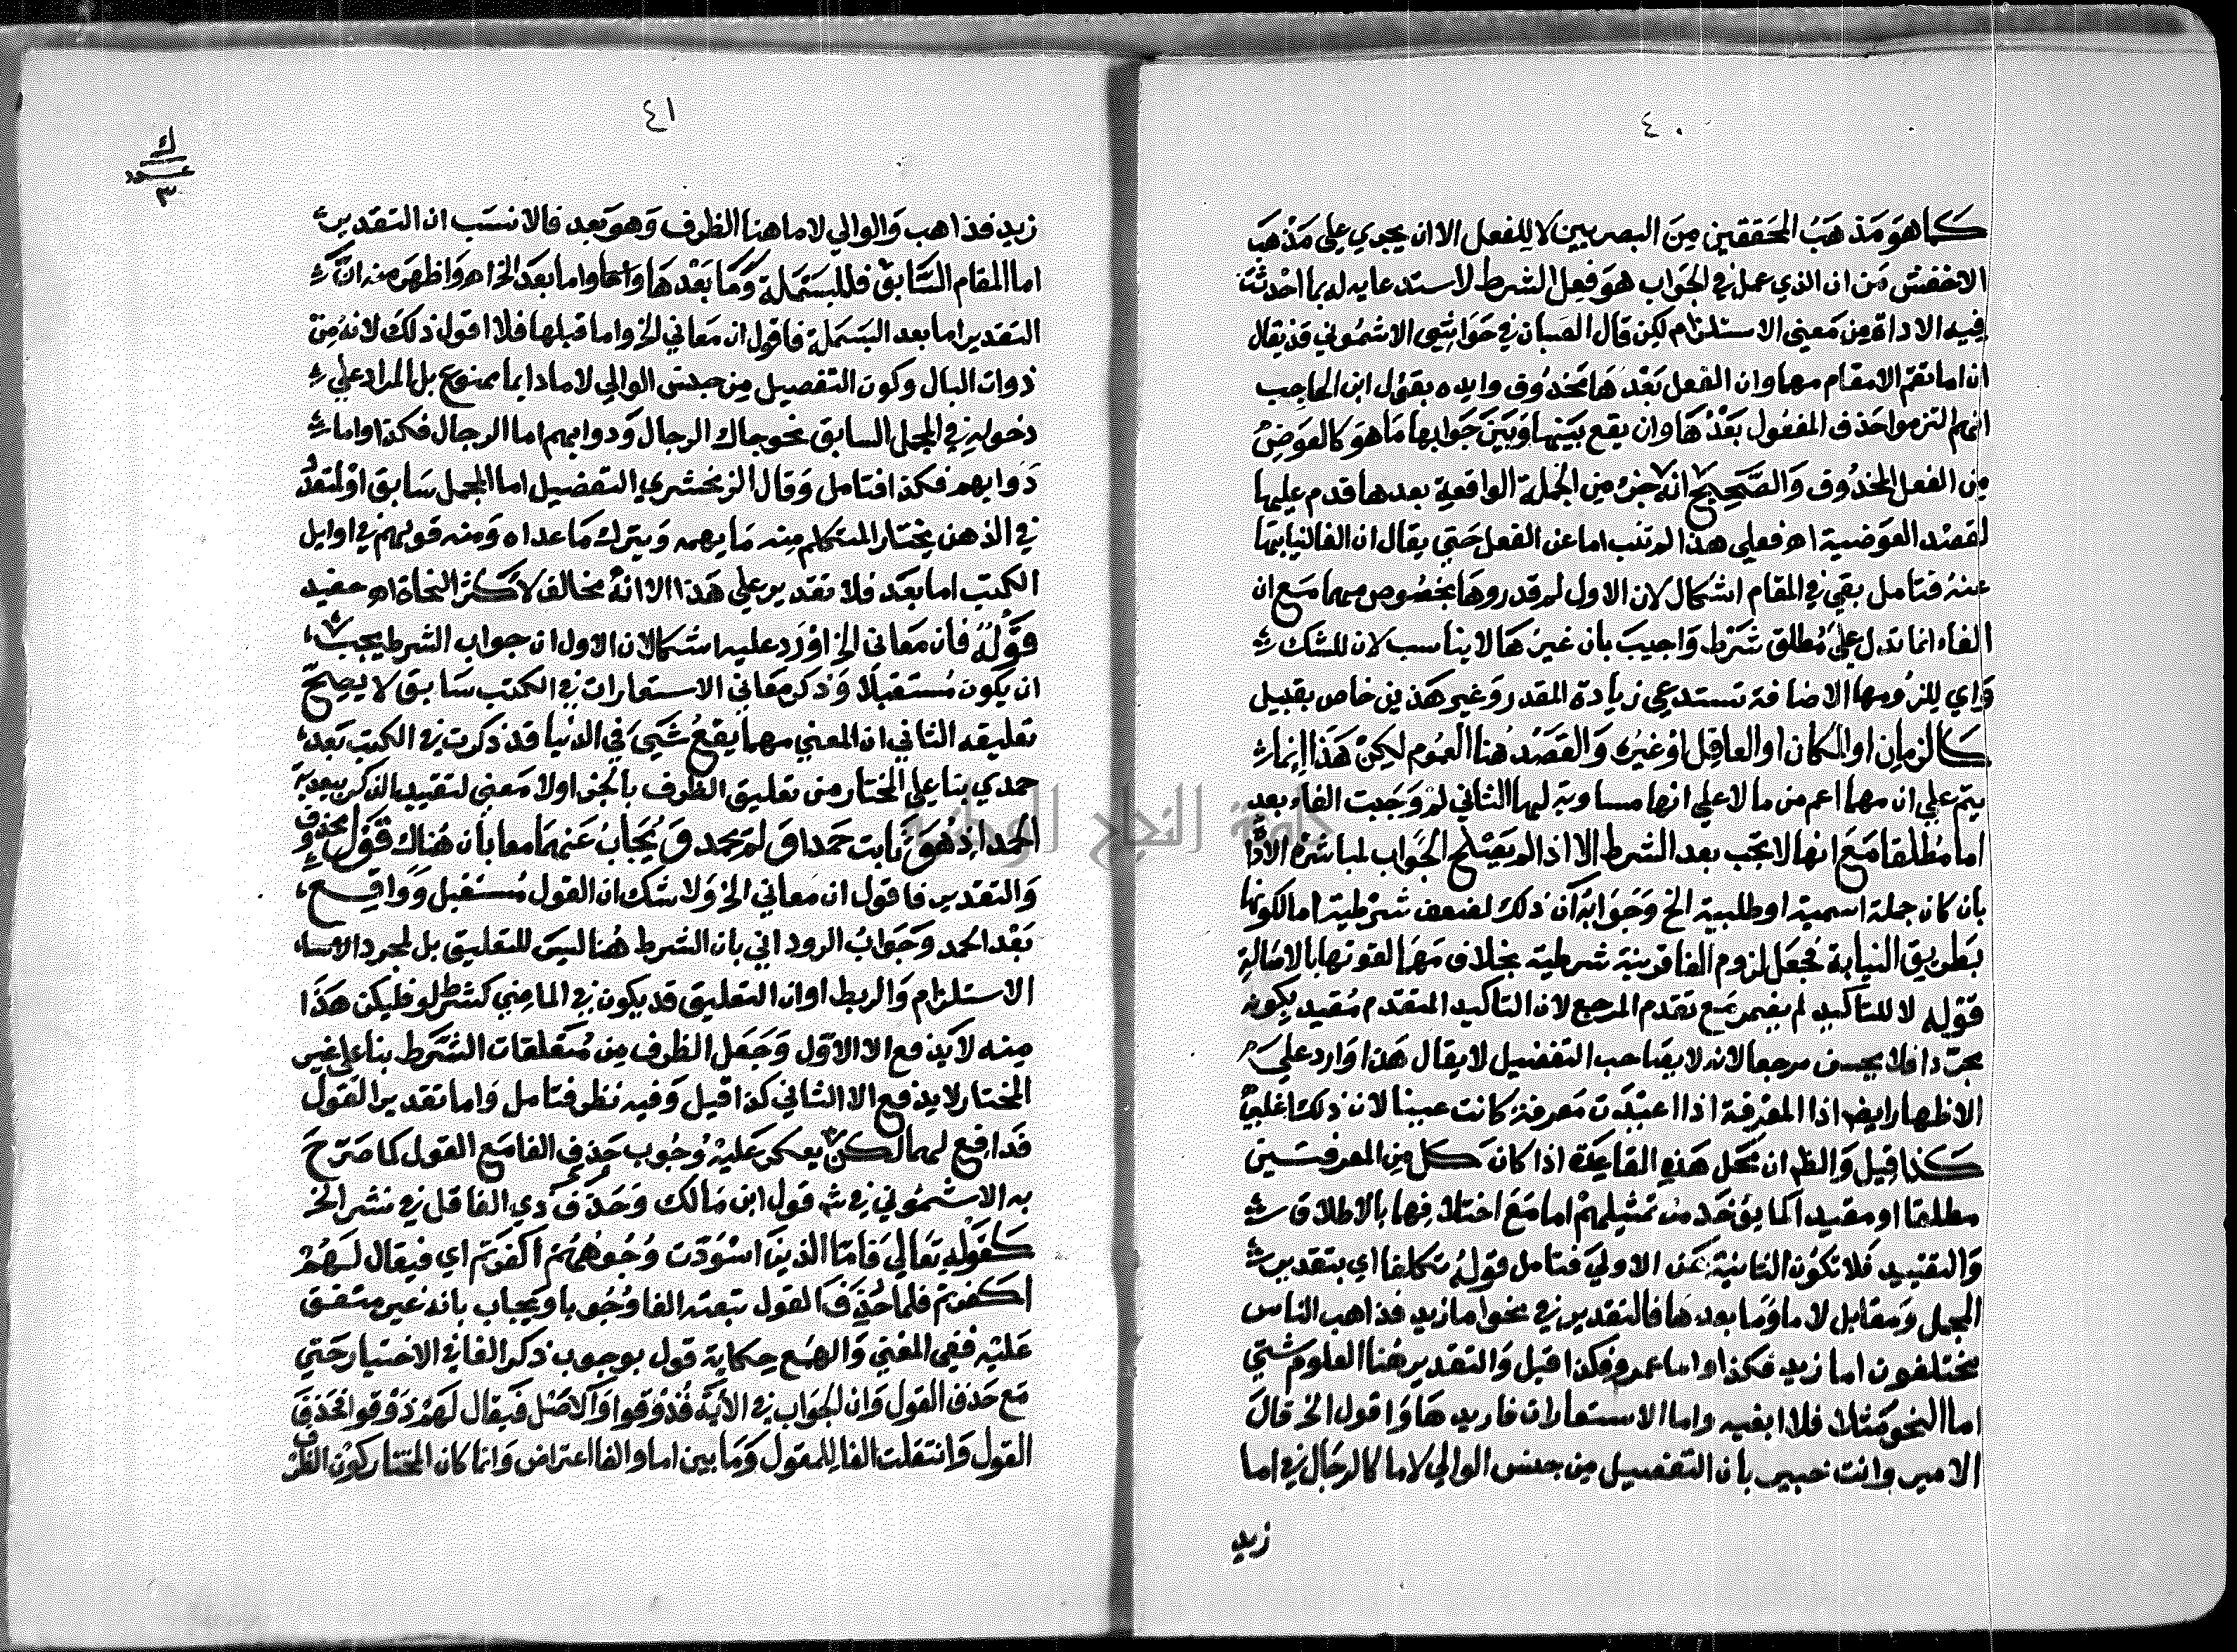 ٤٠
كما هو مذهب المحققين من البصريين لا للفعل الا ان يجري على مذهب
الاخفش من ان الذي عمل في الجواب هو فعل الشرط لاستدعايه له بما احدثت
فيه الاداة من معنى الاستلزام لكن قال الصبان في حواشي الاشموني قد يقال
ان اما تقم الا مقام مهما وان الفعل بعدها محذوف وايده بقول ابن الحاجب
انهم التزموا حذف الفعل بعدها وان يقع بينها وبين جوابها ما هو كالعوض
من الفعل المحذوف والصحيح انه جزء من الجملة الواقعية بعدها قدم عليها
لقصد العوضية اه فعلى هذا لم تنب اما عن الفعل حتى يقال ان الفا لنيابتها
عنه فتامل بقي في المقام اشكال لان الاول لم قدروها بخصوص مهما مع ان
الفاء انما تدل على مطلق شرط واجيب بان غيرها لا يناسب لان للشك
واي للزومها الاضافة تستدعي زيادة المقدر وغير هذين خاص بقبيل
كالزمان او المكان او العاقل او غيره والقصد هنا العموم لكن هذا انما
يتم على ان مهما اعم من ما لا على انها مساوية لها الثاني لم وجبت الفاء بعد
اما مطلقا مع انها لا تجب بعد الشرط الا اذا لم يصلح الجواب لمباشرة الاداة
بان كان جملة اسمية او طلبية الخ وجوابه ان ذلك لضعف شرطية اما لكونها
بطريق النيابة فجعل لزوم الفا قرينة شرطية بخلاف مهما لقوتها بالاصالة
قوله لا للتاكيد لم يضمر مع تقدم المرجع لان التاكيد المتقدم مقيد بكونه
مجردا فلا يحسن مرجعا لانه لا يصاحب التفضيل لا يقال هذا وارد على
الاظهار ايضا اذا المعرفة اذا اعيدت معرفة كانت عينا لان ذلك اغلبي
كذا قيل والظ ان محل هذه القاعدة اذا كان كل من المعرفتين
مطلقا او مقيدا كما يؤخذ من تمثيلهم اما مع اختلافها بالاطلاق
والتقييد فلا تكون الثانية عن الاولى فتامل قوله تكلفا اي بتقدير
المجمل ومقابل لاما وما بعدها فالتقدير في نحو اما زيد فذاهب الناس
مختلفون اما زيد فكذا واما عمرو فكذا قيل والتقدير هنا العلوم شتى
اما النحو مثلا فلا ابغيه واما الاستعارات فاريدها واقول الخ قال
الامير وانت خبير بان التفصيل من جنس الوالي لاما كالرجال في اما
زيد
٤١
ك
٣
زيد فذاهب والوالي لاما هنا الظرف وهو بعد فالانسب ان التقدير
اما المقام السابق فللبسملة وما بعدها واما بعد الخ اه واظهر منه ان
التقدير اما بعد البسملة فاقول ان معاني الخ واما قبلها فلا اقول ذلك لانه من
ذوات البال وكون التفصيل من جنس الوالي لاما دايما ممنوع بل المراد على
دخوله في المجمل السابق نحو جاك الرجال ودوابهم اما الرجال فكذا واما
دوابهم فكذا فتامل وقال الزمخشري التفضيل اما المجمل سابق او لمتعدد
في الذهن يختار المتكلم منه ما يهمه ويترك ما عداه ومنه قولهم في اوايل
الكتب اما بعد فلا تقدير على هذا الا انه مخالف لاكثر النحاة اه حفيد
قوله فان معاني الخ اورد عليه اشكالان الاول ان جواب الشرط يجب
ان يكون مستقبلا وذكر معاني الاستعارات في الكتب سابق لا يصح
تعليقه الثاني ان المعنى مهما يقع شيء في الدنيا قد ذكرت في الكتب بعد
حمدي بنا على المختار من تعليق الظرف بالجزا ولا معنى لتقييد الذكر ببعدية
الحمد اذ هو ثابت حمد او لم يحمد ويجاب عنهما معا بان هناك قول محذوف
والتقدير فاقول ان معاني الخ ولا شك ان القول مستقبل وواقع
بعد الحمد وجواب الروداني بان الشرط هنا ليس للتعليق بل لمجرد
الاستلزام والربط او ان التعليق قد يكون في الماضي كشرط لو فليكن هذا
منه لا يدفع الا الاول وجعل الظرف من متعلقات الشرط بنا على غير
المختار لا يدفع الا الثاني كذا قيل وفيه نظر فتامل واما تقدير القول
فدافع لهما لكن يعكر عليه وجوب حذف الفا مع القول كما صرح
به الاشموني في ش قول ابن مالك وحذف ذي الفا قل في نثر الخ
كقوله تعالى فاما الذين اسودت وجوههم اكفرتم اي فيقال لهم
اكفرتم فلما حذف القول تبعته الفا وجوبا ويجاب بانه غير متفق
عليه ففي المغني والهمع حكاية قول بوجوب ذكر الفا في الاختيار حتى
مع حذف القول وان الجواب في الاية فذوقوا والاصل فيقال لهم ذوقوا فحذف
القول وانتقلت الفا للمقول وما بين اما والفا اعتراض وانما كان المختار كون الظرف